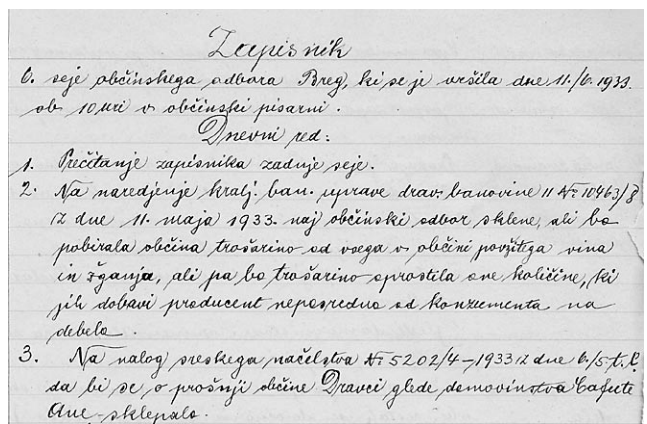 Zapisnik
6. seje občinskega odbora Breg, ki se je vršila dne 11./6. 1933.
ob 10 uri v občinski pisarni.
Dnevni red:
1. Prečitanje zapisnika zadnje seje.
2. Na naredjenje kralj. ban. uprave drav. banovine II № 10463/8
z dne 11. maja 1933. naj občinski odbor sklene, ali bo
pobirala občina trošarino od vsega v občini použitega vina
in žganja, ali pa bo trošarino oprostila one količine, ki
jih dobavi producent neposredno od konzumenta na
debelo.
3. Na nalog sreskega načelstva № 5202/4-1933 z dne 6/5 t. l.
da bi se o prošnji občine Dravci glede domovinstva
Ane sklepalo.